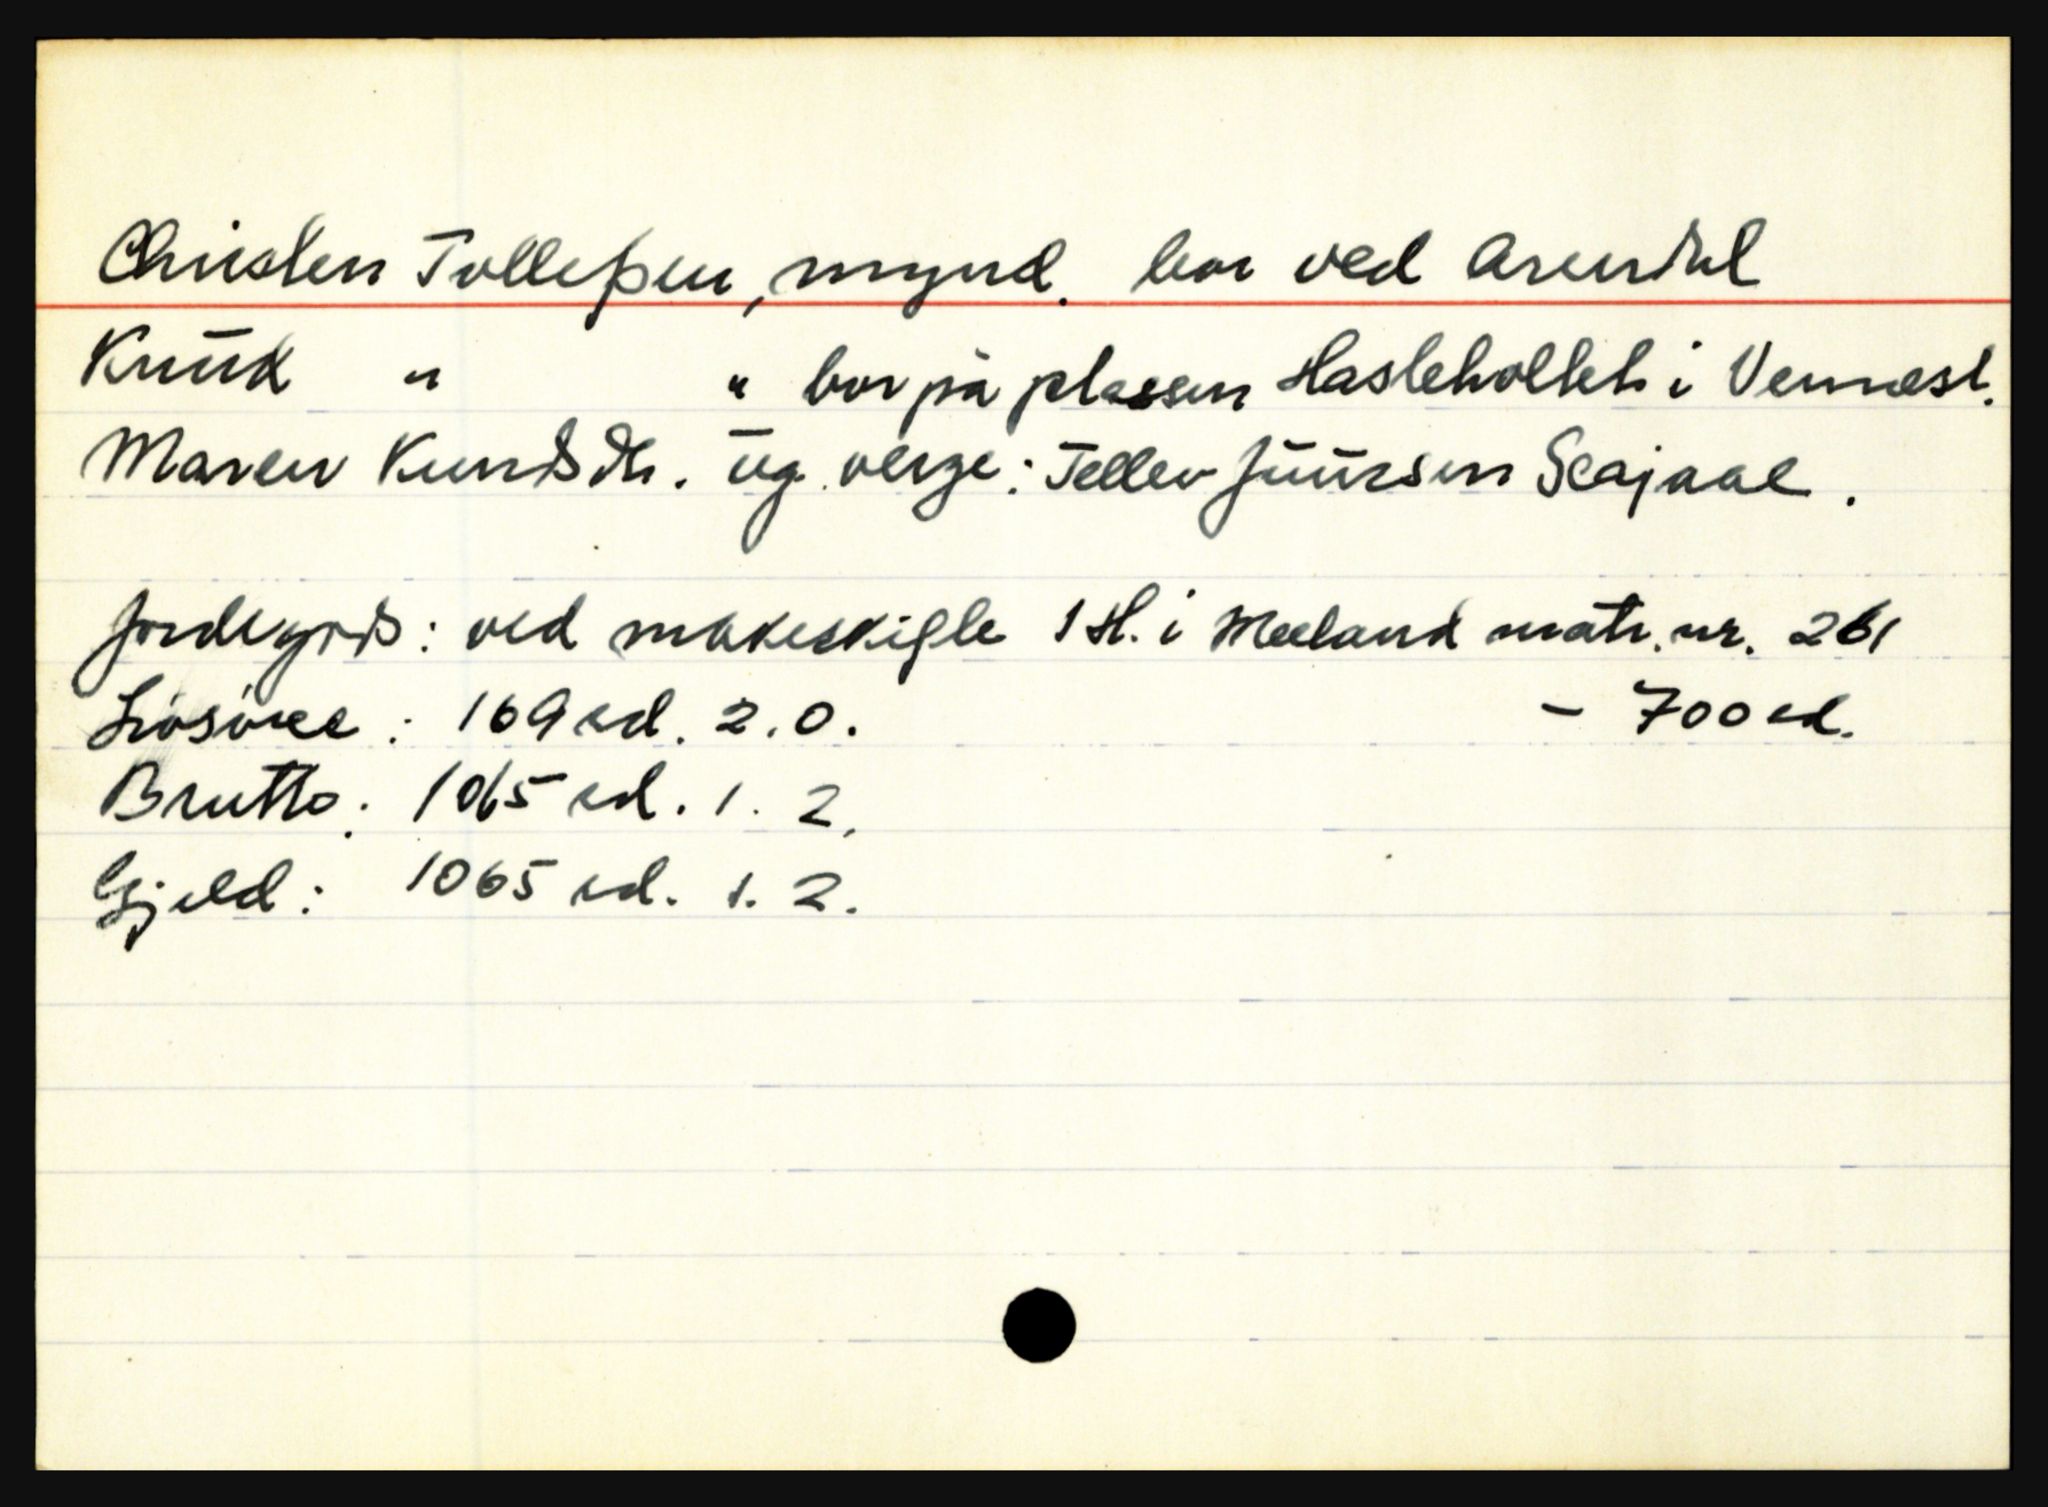 Christen Tolleßen, mynd. bor ved Arendal
Knud " " bor på plassen Hasleholteh i Vennesl.
Maren Knudsdtr. ug. verge: Tellev Juursen Scajaae.
Jordegods: ved makeskifte 1 H. i Meeland matr. nr. 261
Lösöree: 169 rd. 2. 0. - 700 rd.
Brutto: 1065 rd. 1. 2.
Gjeld: 1065 rd. 1. 2.